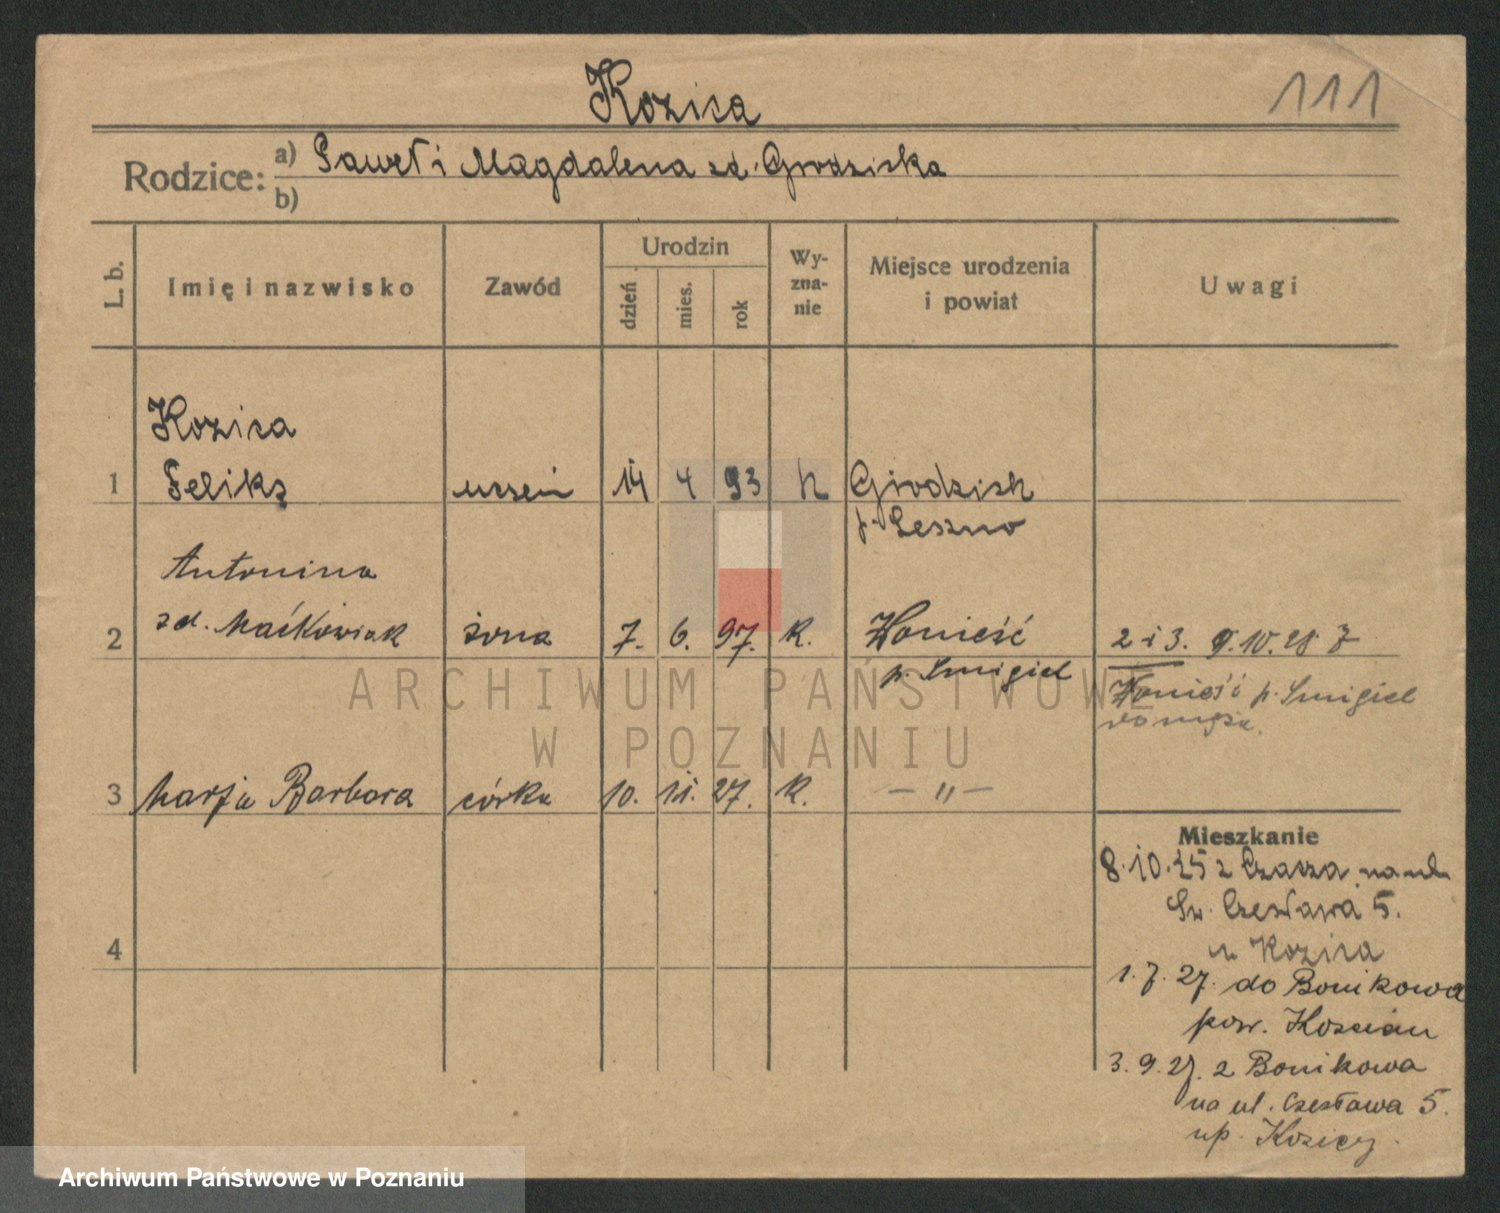 Kozica
111
Rodzice: a) Paweł i Magdalena zd. Grodziska
b)
L. b.
Imię i nazwisko
Zawód
Urodzin
dzień
mies.
rok
Wy-
zna-
nie
Miejsce urodzenia
i powiat
Uwagi
Kozica
1 Feliks uczeń 14 4 93 k Grodzisk
p. Leszno
Antonina
2 zd. Maćkowiak żona 7. 6. 97. k. Wonieść 2 i 3. 9.10.28 z
p. Śmigiel Wonieść p. Śmigiel
do męża.
3 Marja Barbara córka 10. 11. 27. k. — „ —
Mieszkanie
8.10.25 z Czacza na ul.
Św. Czesława 5.
u Kozica
4
1.7.27. do Bonikowa
pow. Kościan
3.9.27. z Bonikowa
na ul. Czesława 5.
up. Kozicy.
ARCHIWUM PAŃSTWOWE
W POZNANIU
Archiwum Państwowe w Poznaniu